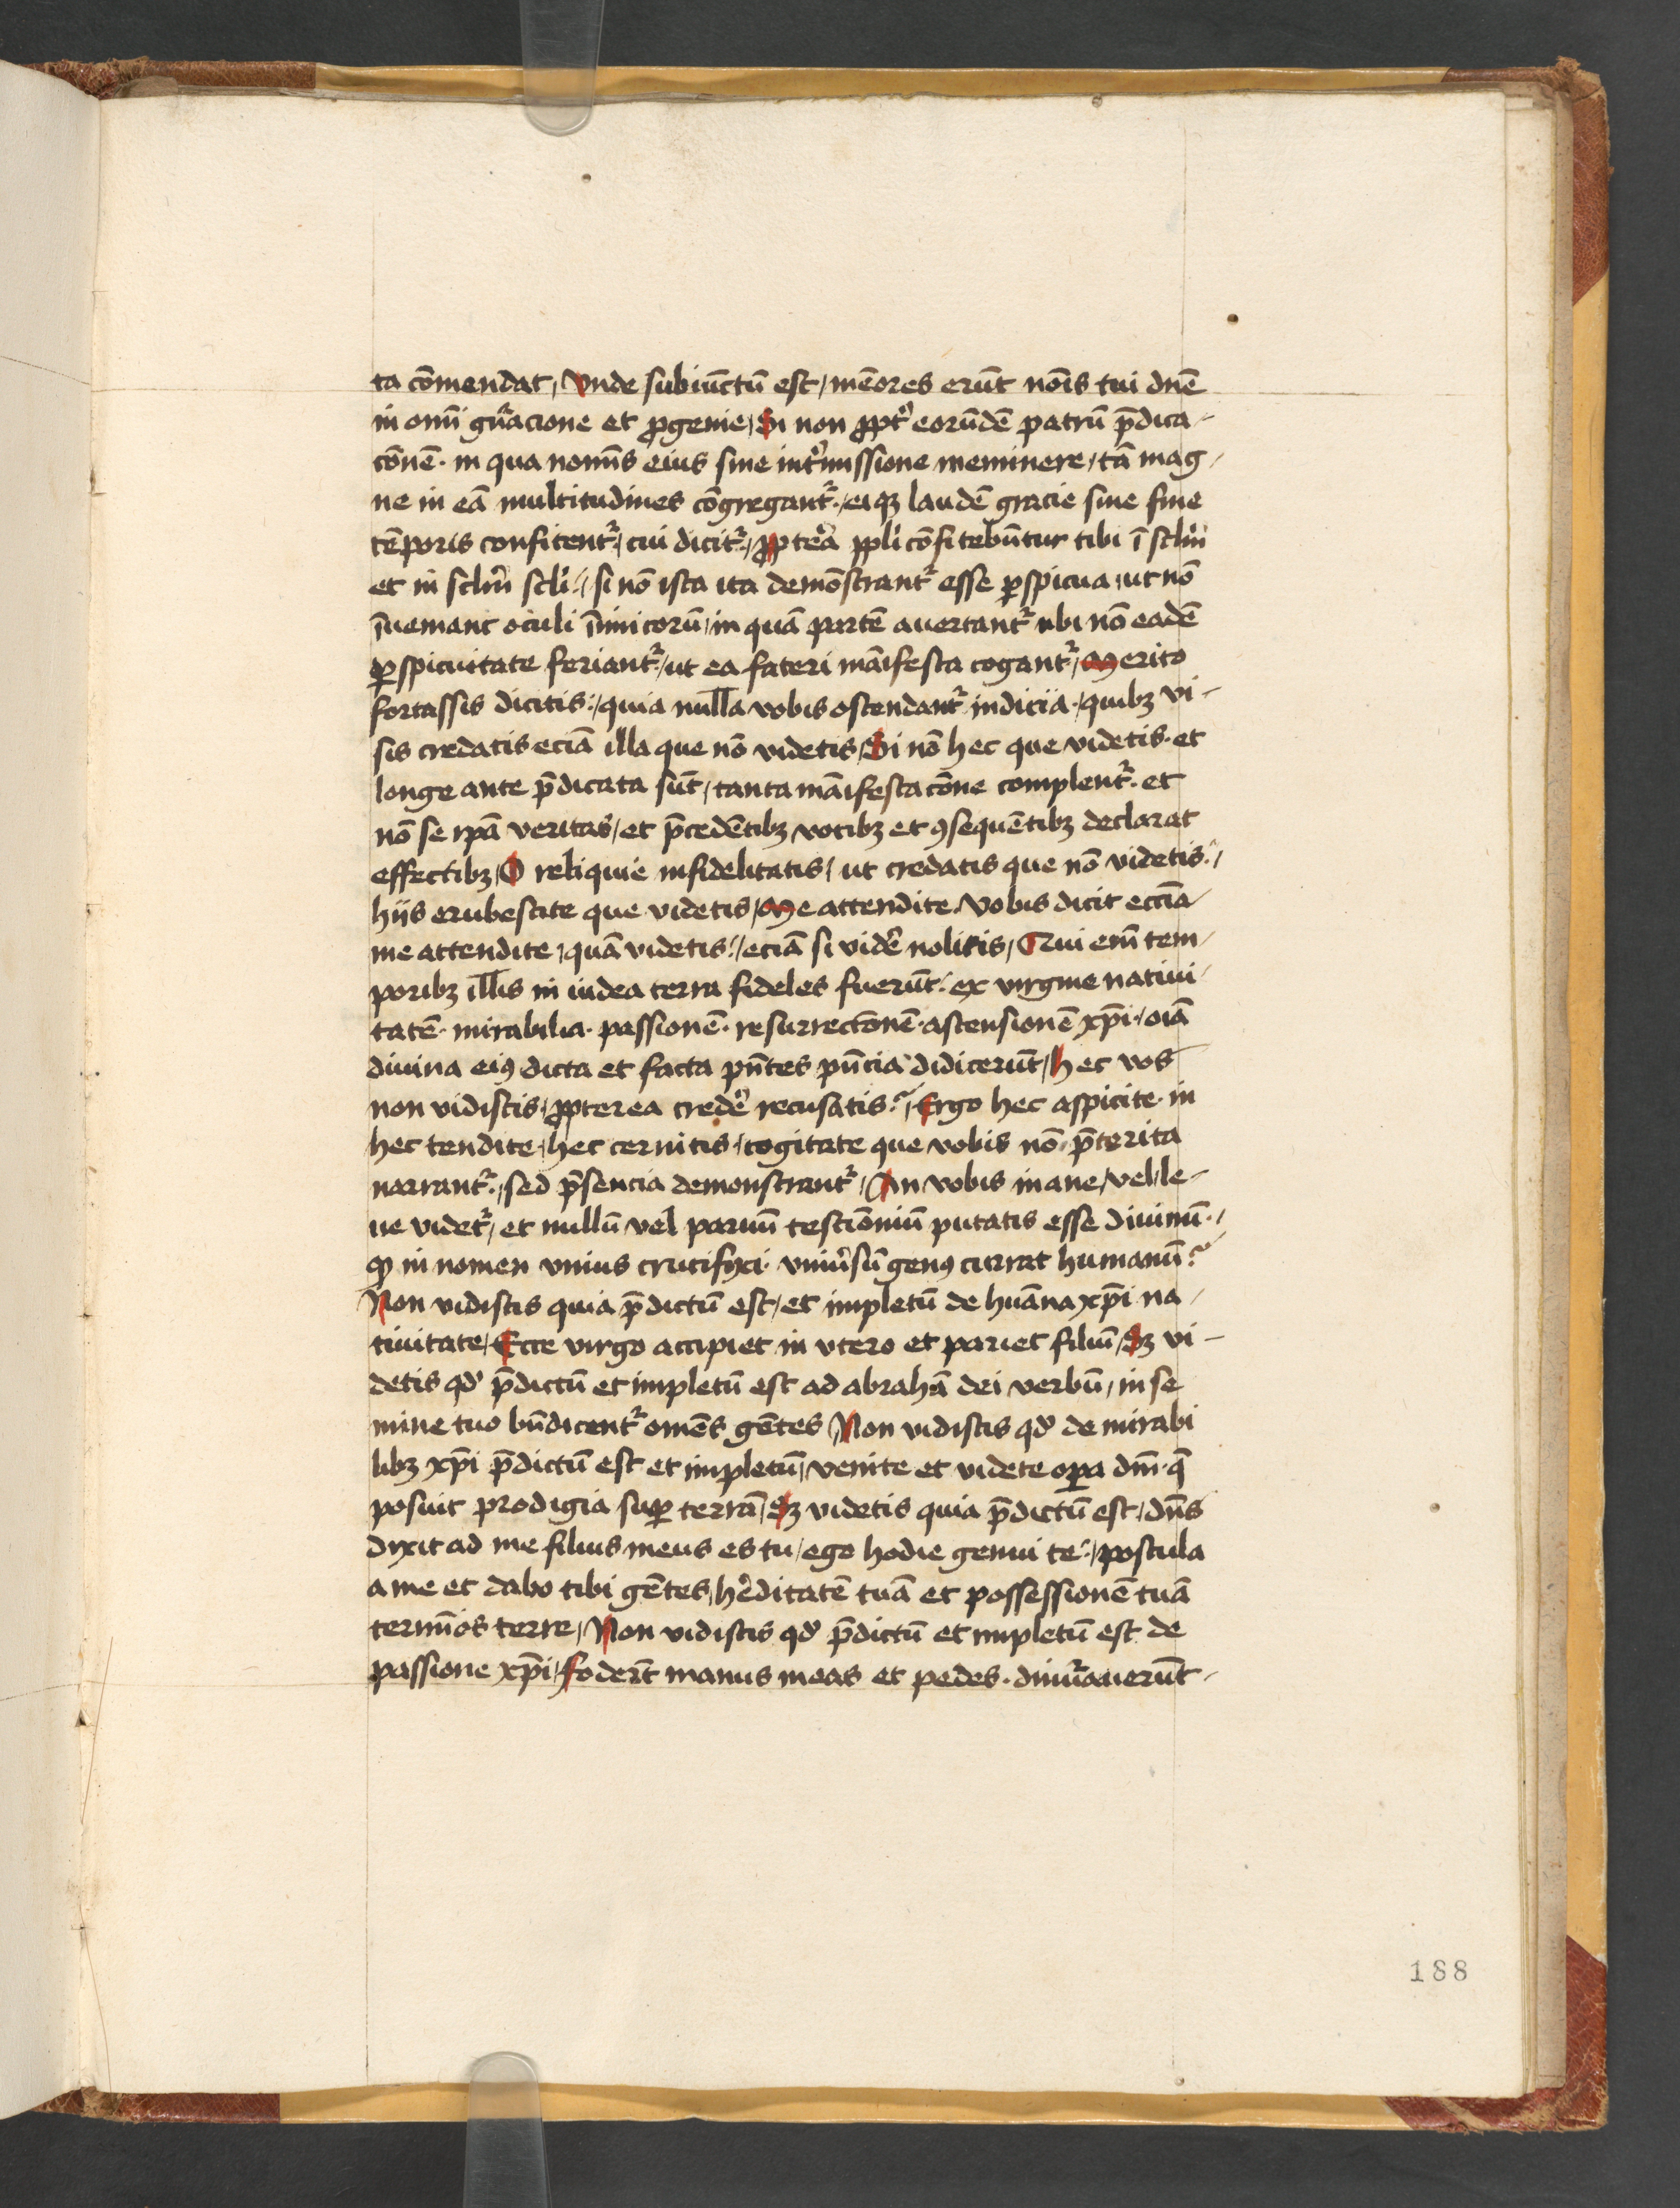 ta cōmendat / Vnde subiūctū est / mēores erūt noīs tui dn̄e
in omī gn̄acione et ꝓgenie / Si non ꝓpt̉ eorūdē patrū p̄dica-
cōnē · in qua nomīs eius sine int̉missione meminere / tā mag-
ne in eā multitudines cōgregant̉ / eiqꝫ laudē gracie sine fine
tēporis confitent̉ / cui dicit̉ / ꝓpterea ppl̉i cōfitebūntur tibi ī scl̉m
et in scl̉m scl̉i / si nō ista ita demōstrant̉ esse ꝑspicua / ut nō
īueniant oculi īimicorū / in quā partē auertant̉ ubi nō eadē
ꝑspicuitate feriant̉ / ut ea fateri māifesta cogant̉ / Merito
fortassis dicitis / quia nulla vobis ostendant̉ indicia · quibꝫ vi-
sis credatis eciā illa que nō videtis / Si nō hec que videtis · et
longe ante p̄dicata sūt / tanta māifestacōne complent̉ · et
nō se ip̄a veritas / et p̄cedētibꝫ vocibꝫ et ꝯsequētibꝫ declarat
effectibꝫ / O reliquie infidelitatis / ut credatis que nō videtis /
hijs erubescite que videtis / Me attendite vobis dicit eccīa
me attendite / quā videtis / eciā si vider̉ nolitis / Qui em̄ tem-
poribꝫ illis in iudea terra fideles fuerūt · ex virgine natiui-
tatē · mirabilia · passionē · resurrectōnē · ascensionē xp̄i · oīa
diuina eiꝰ dicta et facta pn̄tes pn̄cia didicerūt / hec vos
non vidistis / ꝓpterea creder̉ recusatis / Ergo hec aspicite · in
hec tendite / hec cernitis / cogitate que vobis nō p̄terita
narrant̉ / sed p̄sencia demonstrant̉ / An vobis inane / vel le-
ue videt̉ / et nullū vel paruū testiōnium putatis esse diuinū · /
qꝫ in nomen vnius crucifixi · vniūsū genꝰ currat humanū ?
Non vidistis quia p̄dictū est / et impletū de huāna xp̄i na-
tiuitate / Ecce virgo accipiet in vtero et pariet filiū / Sꝫ vi-
detis qd̓ p̄dictū et impletū est ad abrahā dei verbū / in se
mine tuo bn̄dicent̉ omēs gētes / Non vidistis qd̓ de mirabi
libꝫ xp̄i p̄dictū est et impletū / venite et videte oꝑa dn̄i · q̄
posuit prodigia suꝑ terrā / Sꝫ videtis quia p̄dictū est / dn̄s
dixit ad me filius meus es tu / ego hodie genui te / postula
a me et dabo tibi gētes / h̉editatē tuā et possessionē tuā
termīos terre / Non vidistis qd̓ p̄dictū et impletū est de
passione xp̄i / foder̄t manus meas et pedes · dinūauerūt-
188